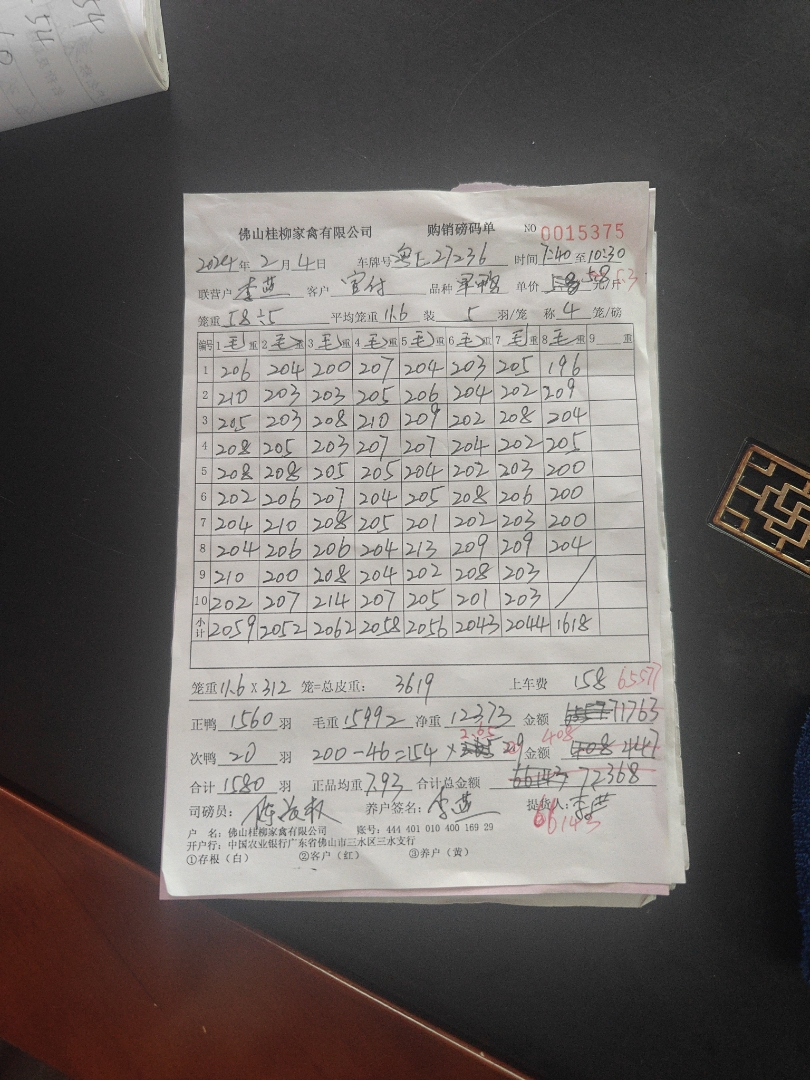 佛山桂柳家禽有限公司 购销磅码单 NO 0015375
2024年2月4日 车牌号 粤E27236 时间 7:40至10:30
联营户 李燕 客户 品种 单价 5.8 元/斤 5.3
笼重 58÷5 平均笼重 11.6 装 5 羽/笼 称 4 笼/磅
编号 1毛重 2毛重 3毛重 4毛重 5毛重 6毛重 7毛重 8毛重 9 重
1 206 204 200 207 204 203 205 196
2 210 203 203 205 206 204 202 209
3 205 203 208 210 209 202 208 204
4 208 205 203 207 207 204 202 205
5 208 208 205 205 204 202 203 200
6 202 206 207 204 205 208 206 200
7 204 210 208 205 201 202 203 200
8 204 206 206 204 213 209 209 204
9 210 200 208 204 202 208 203
10 202 207 214 207 205 201 203
小计 2059 2052 2062 2058 2056 2043 2044 1618
笼重 11.6 X 312 笼=总皮重: 3619 上车费 158 65577
正鸭 1560 羽 毛重 15992 净重 12373 金额 71763
2.65 408
次鸭 20 羽 200-46=154 × 2.9 金额 447
合计 1580 羽 正品均重 7.93 合计总金额 66143 72368
司磅员: 养户签名: 李燕 提货人: 李燕
66143
户 名: 佛山桂柳家禽有限公司 账号: 444 401 010 400 169 29
开户行: 中国农业银行广东省佛山市三水区三水支行
①存根(白) ②客户(红) ③养户(黄)